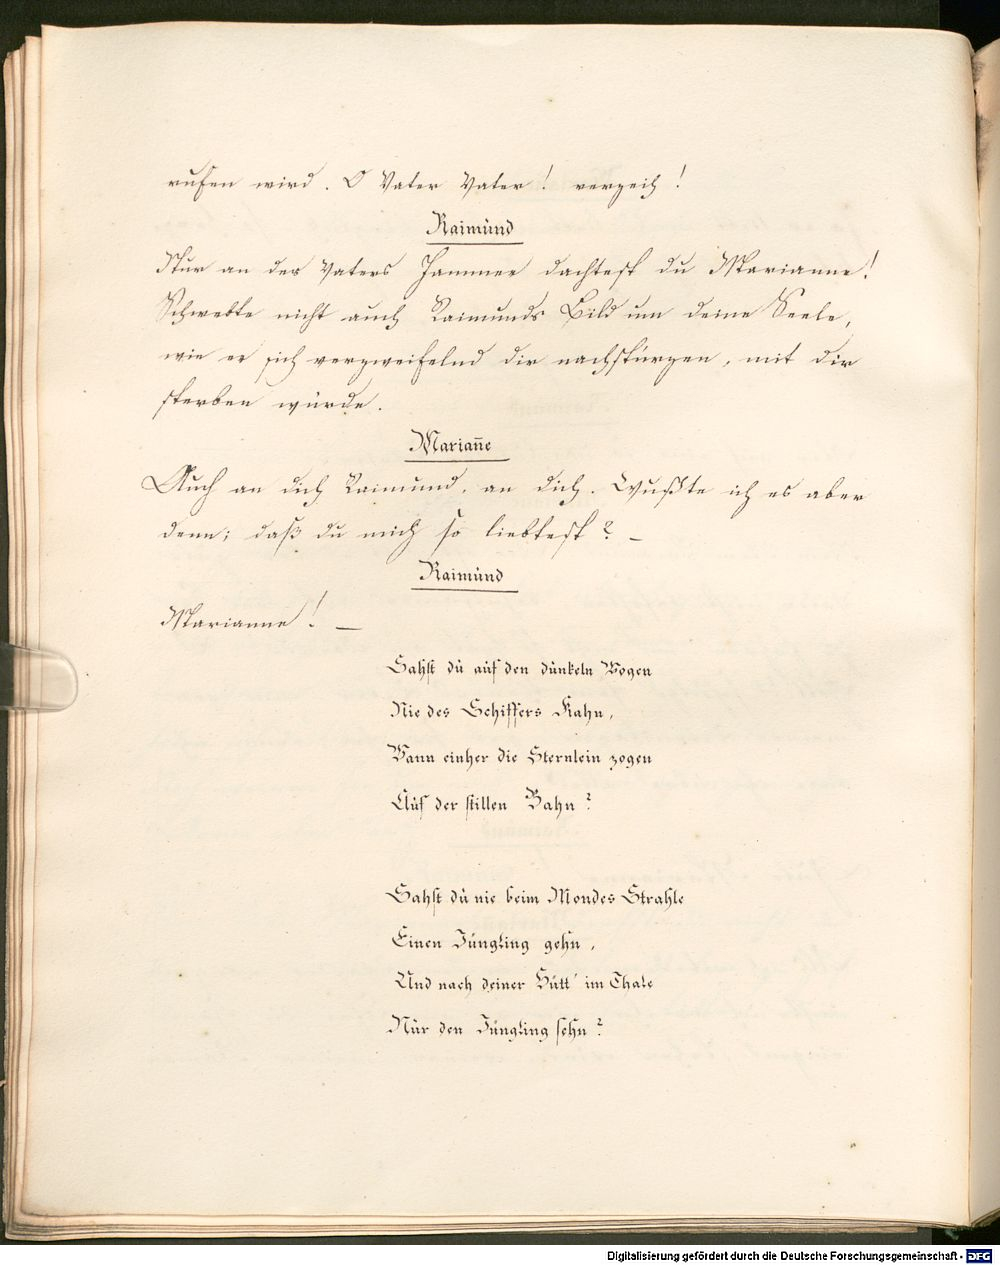 rufen wird. O Vater Vater! verzeih!
Raimund
Nur an des Vaters Jammer dachtest du Marianne!
Schwebte nicht auch Raimunds Bild um deine Seele,
wie er sich verzweifelnd dir nachstürzen, mit dir
sterben würde.
Mariañe
Auch an dich Raimund, an dich. Wußte ich es aber
denn; daß du mich so liebtest? –
Raimund
Marianne! –
Sahst du auf den dunkeln Wogen
Nie des Schiffers Kahn,
Wann einher die Sternlein zogen
Auf der stillen Bahn?
Sahst du nie beim Mondes Strahle
Einen Jüngling gehn,
Und nach deiner Hütt' im Thale
Nur den Jüngling sehn?
Digitalisierung gefördert durch die Deutsche Forschungsgemeinschaft - DFG